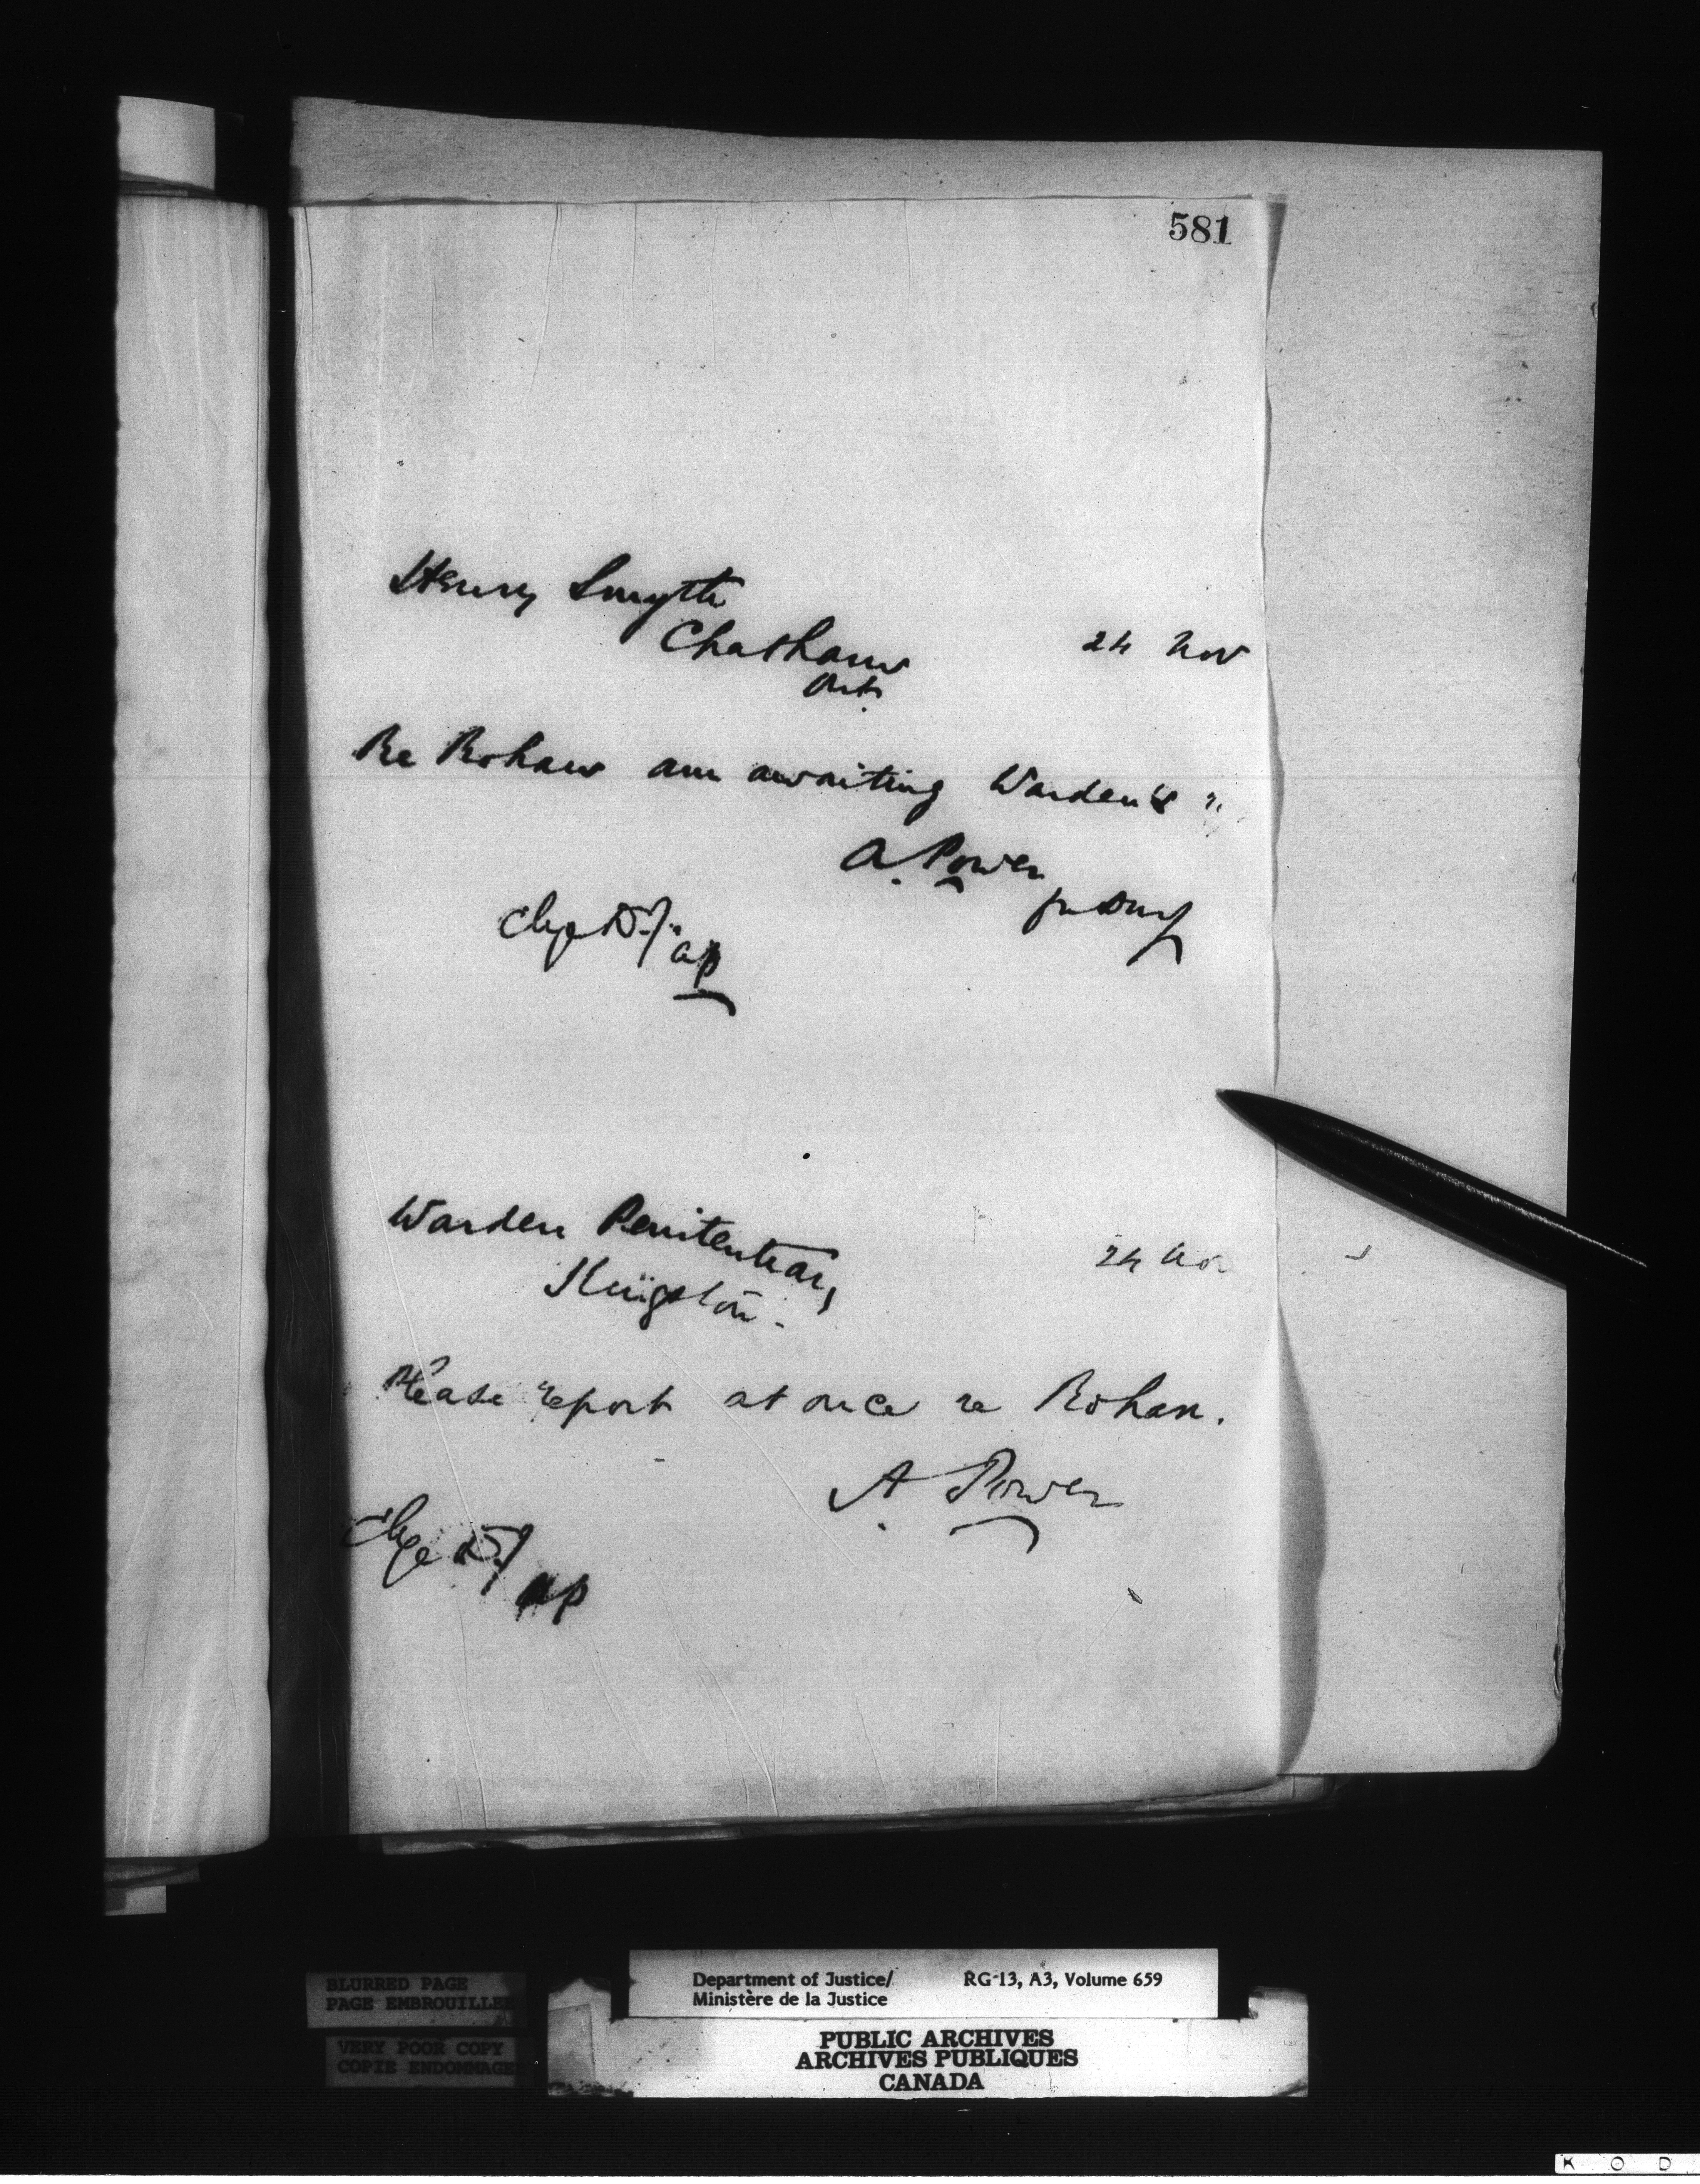 581
Henry Smyth
Chatham
Ont.
24 Nov
Re Rohan am awaiting Warden's
A. Power
Chge D.J.
AP
Warden Penitentiary
Kingston.
24 Nov
Please report at once re Rohan.
A. Power
Chge D.J.
AP
BLURRED PAGE
PAGE EMBROUILLEE
VERY POOR COPY
COPIE ENDOMMAGE
Department of Justice/ RG-13, A3, Volume 659
Ministère de la Justice
PUBLIC ARCHIVES
ARCHIVES PUBLIQUES
CANADA
K O D